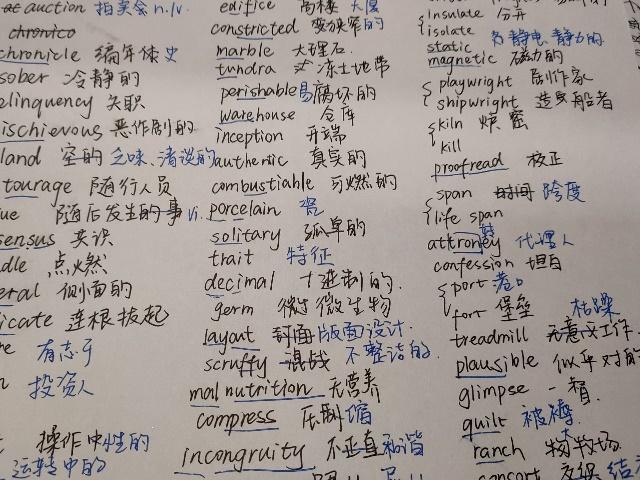 auction 拍卖会 n./v.
chronico
chronicle 编年体史
sober 冷静的
elinquency 失职
ischievous 恶作剧的
land 空的 乏味、清淡的
tourage 随行人员
ue 随后发生的事 vi.
sensus 共识
dle 点火然
eral 侧面的
icate 连根拔起
re 有志于
n 投资人
操作中性的
运转中的
edifice 高楼大厦
constricted 变狭窄的
marble 大理石
tundra 冻土地带
perishable 易腐坏的
warehouse 仓库
inception 开端
authentic 真实的
combustiable 可燃的
porcelain 瓷
solitary 孤单的
trait 特征
decimal 十进制的
germ 微生物
layout 封面 版面设计
scruffy 混战 不整洁的
malnutrition 无营养
compress 压制缩
incongruity 不和谐
insulate 分开
isolate
static 静电 静力的
magnetic 磁力的
playwright 剧作家
shipwright 造船者
kiln 炉窑
kill
proofread 校正
span 时间 跨度
life span
attroney 代理人
confession 坦白
port 港口
fort 堡垒
treadmill 无意义工作 枯躁
plausible 似乎对的
glimpse 一瞥
quilt 被褥
ranch 牧场